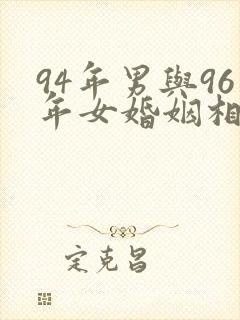 94年男與96
年女婚姻相
定克昌